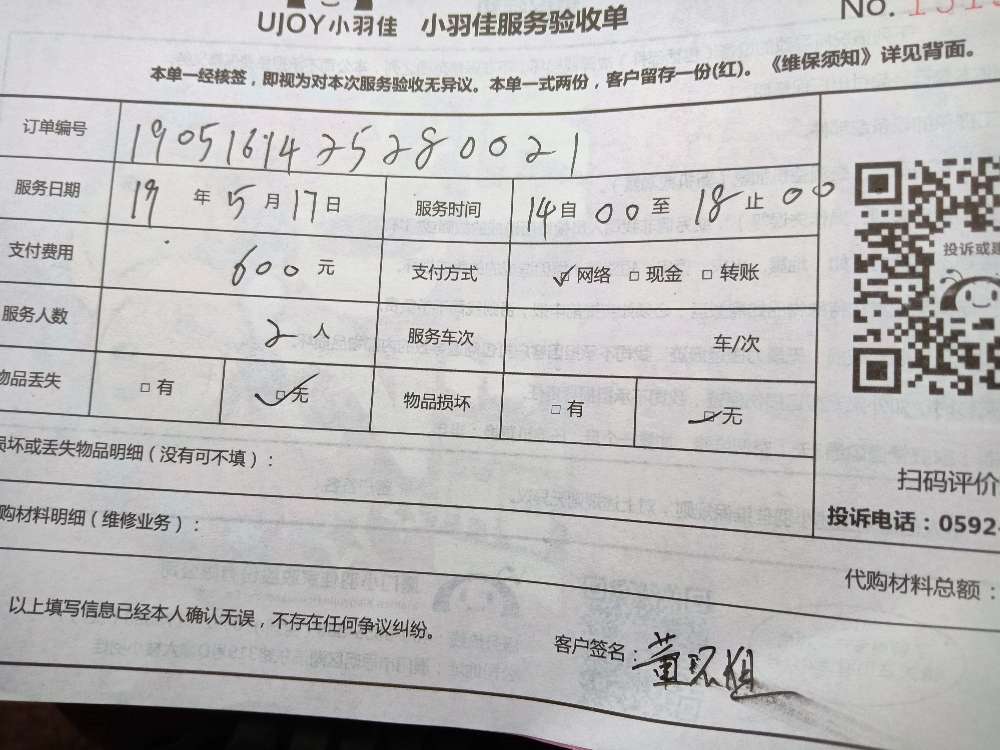 UJOY小羽佳 小羽佳服务验收单 No.
本单一经核签，即视为对本次服务验收无异议。本单一式两份，客户留存一份(红)。《维保须知》详见背面。
订单编号 1905161425280021
服务日期 19 年 5 月 17 日 服务时间 14 自 00 至 18 止 00
支付费用 600 元 支付方式 ☑网络 □现金 □转账
服务人数 2 人 服务车次 车/次
物品丢失 □有 ☑无 物品损坏 □有 ☑无
损坏或丢失物品明细（没有可不填）：
购材料明细（维修业务）：
投诉或
扫码评价
投诉电话：0592-
代购材料总额：
以上填写信息已经本人确认无误，不存在任何争议纠纷。
客户签名：